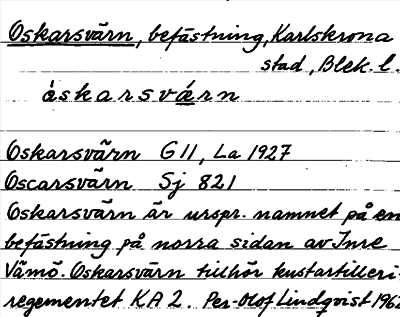 Oskarsvärn, befästning, Karlskrona
stad, Blek. l.
òskarsvæ̀rn
Oskarsvärn G 11, La 1927
Oscarsvärn Sj 821
Oskarsvärn är urspr. namnet på en
befästning på norra sidan av Inre
Vämö. Oskarsvärn tillhör kustartilleri-
regementet KA 2. Per-Olof Lindqvist 1962